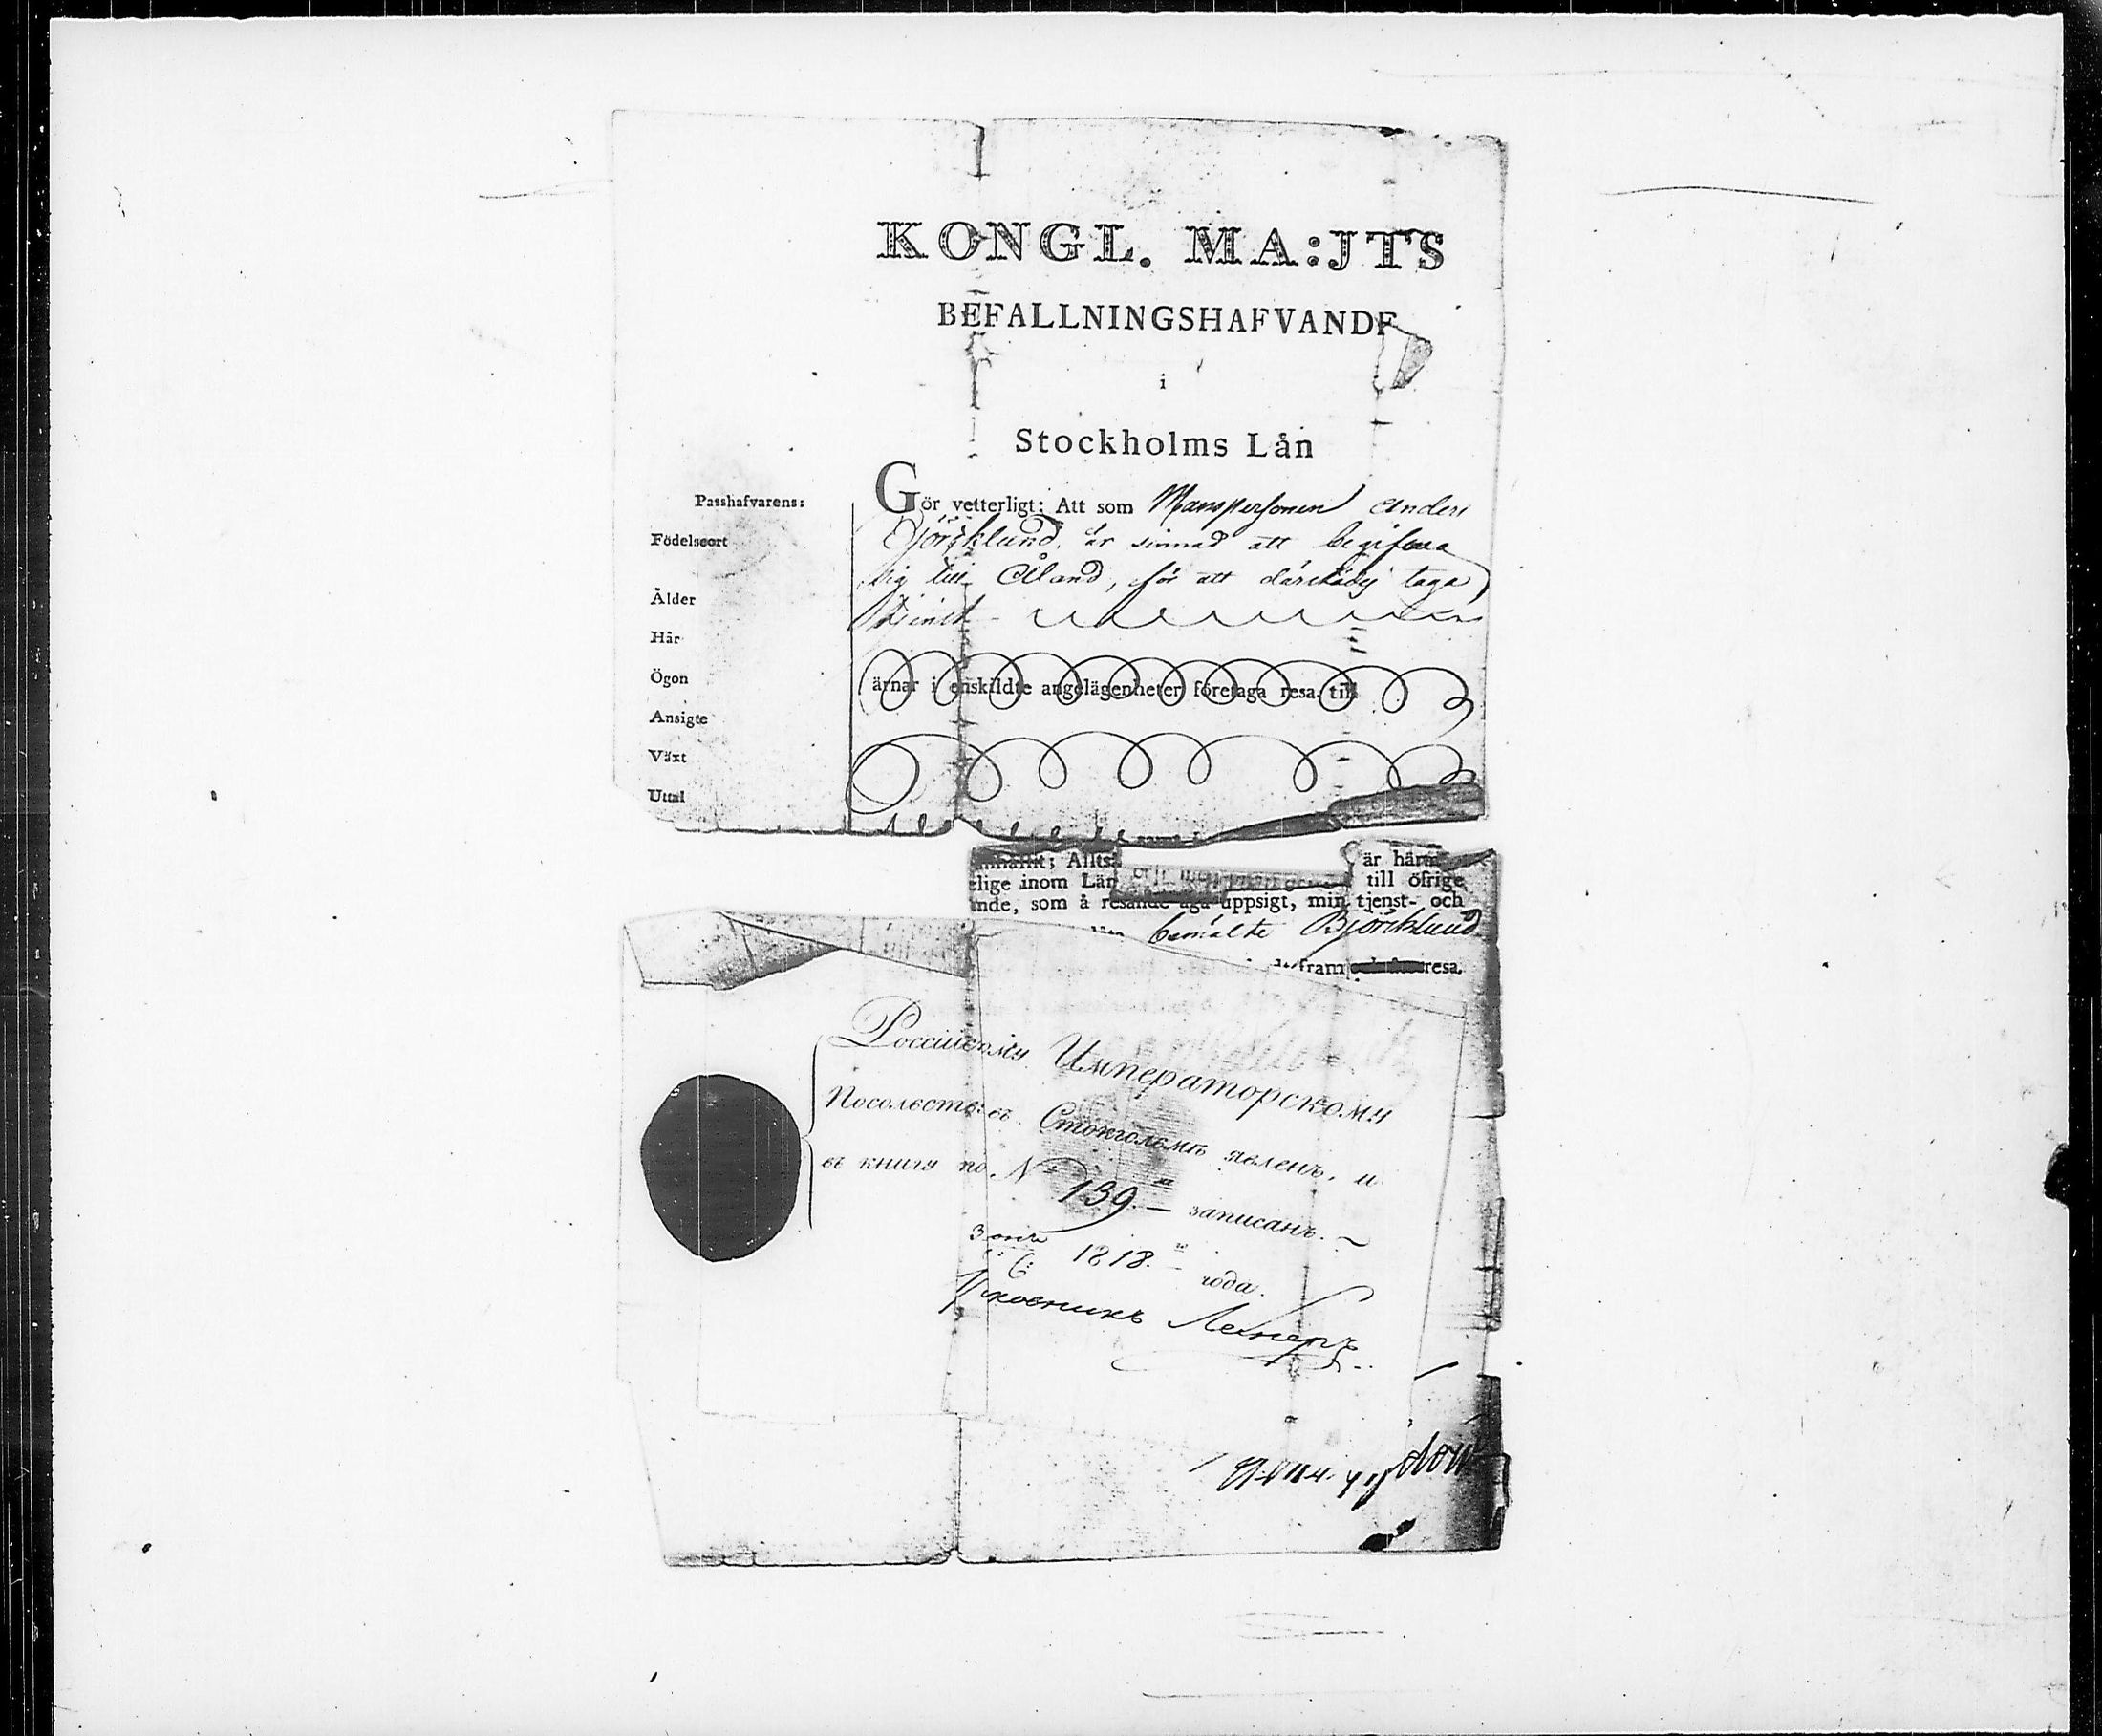 KONGL. MA:JTS
BEFALLNINGSHAFVANDE
i
Stockholms Län
Passhafvarens:
Födelseort
Ålder
Hår
Ögon
Ansigte
Växt
Uttal
Gör vetterligt: Att som Manspersonen Anders
Björcklund, är sinnad att begifva
sig till Åland, för att därstädes taga
tjenst
ärnar i enskildte angelägenheter företaga resa till
; Allts är
elige inom Län till öfrige
ande, som å resande äga uppsigt, min tjenst- och
bemälte Björcklund
fram resa.
Россійскому Императорскому
Посольству въ Стокгольмѣ явленъ, и
въ книгу по N 139. — записанъ. ~
1818. года.